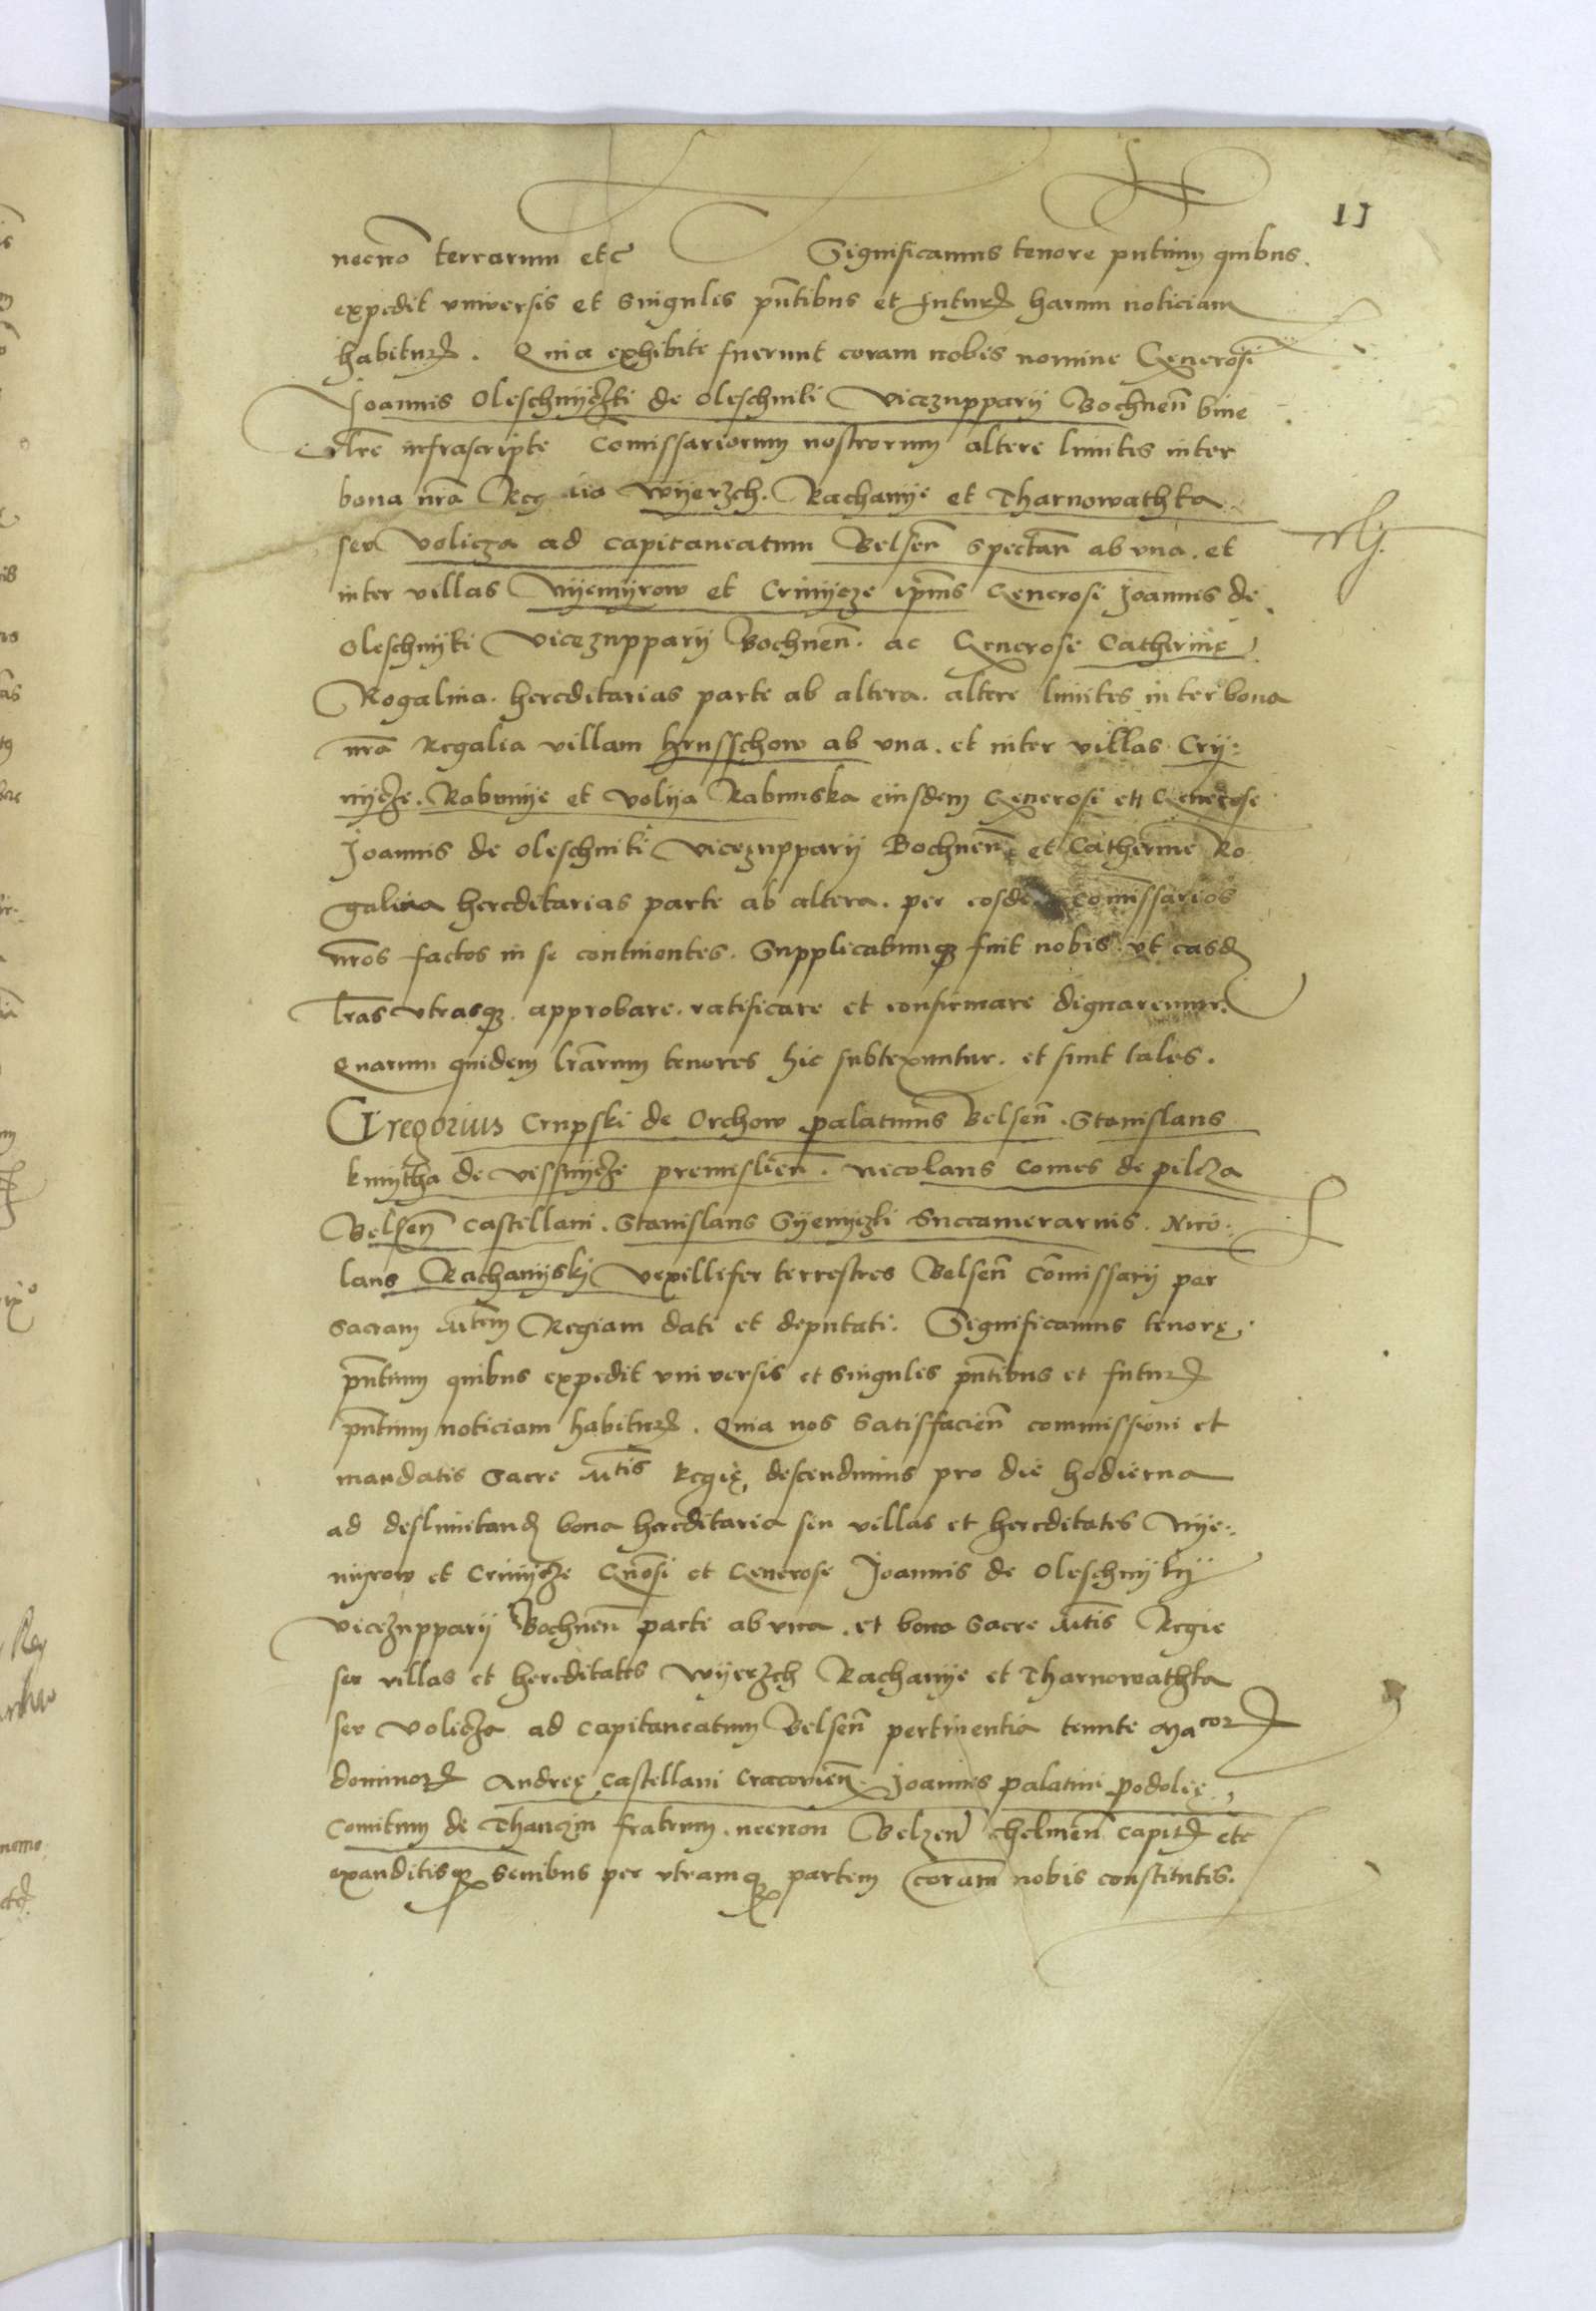 11
necno terrarum etc Significamus tenore pntium quibus
expedit vniversis et singulis pntibus et futur harum noticiam
habitur. Quia exhibite fuerunt coram nobis nomine Generosi
Joannis Oleschnijczki de Oleschniki Vicezupparij Bochnen bine
lre infrascripte Comissariorum nostrorum altere limites inter
bona nra Reg lia Wijerzch. Rachanije et Tharnowathka
seu Volicza ad Capitaneatum Belsen spectan ab vna. et
inter villas Nijemijrow et Crinijcze ipius Generosi Joannis de
Oleschnijki Vicezupparij Bochnen. ac Generose Catherinę
Rogalina. hereditarias parte ab altera. altere limites inter bona
nra Regalia villam Hrusschow ab vna. et inter villas Crij:
nijcze. Rabunije et Volija Rabunska eiusdem Generosi et Generose
Joannis de Oleschniki Vicezupparij Bochnen et Catherine Ro
galina hereditarias parte ab altera. per eosde comissarios
nros factos in se continentes. Supplicatumq fuit nobis vt easd
lras vtrasq. approbare. ratificare et confirmare dignaremur.
Quarum quidem lrarum tenores hic subtexuntur. et sunt tales.
Gregorius Crupski de Orchow palatinus Belsen. Stanislaus
kmijtha de Vissnijcze premislien. Nicolaus Comes de pilcza
Belsen Castellani. Stanislaus Sijenijczki Succamerarius. Nico:
laus Rachanijskij Vexillifer terrestres Belsen Comissarij per
sacram Mtem Regiam dati et deputati. Significamus tenorę
pntium quibus expedit vniversis et singulis pntibus et futur
pntium noticiam habitur. Quia nos satisfacien commissioni et
mandatis Sacre Mtis Regię, descendimus pro die hodierna
ad deslimitand bona hereditaria seu villas et hereditates Nije:
mijrow et Crinijcze Gnosi et Generose Joannis de Oleschnijkij
Vicezupparij Bochnen parte ab vna. et bona Sacre Mtis Regie
seu villas et hereditates Wijerzch Rachanije et Tharnowathka
seu Volicza ad Capitaneatum Belsen pertinentia tenute Macor
dominor Andreę Castellani Cracovien. Joannis palatini podolię
Comitum de Thanczin fratrum. necnon Belzen Chelmen Capit etc
exauditisq senibus per vtramq partem coram nobis constitutis.